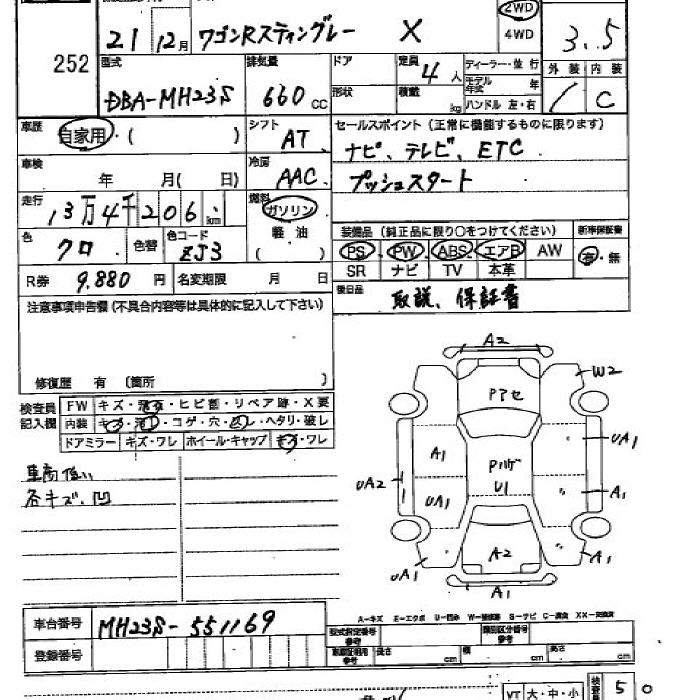 252
21 12月 ワゴンRスティングレー X
2WD
4WD
3.5
型式 DBA-MH23S
排気量 660 CC
ドア
形状
定員 4 人
積載 kg
ディーラー・並行
モデル年式 年
ハンドル 左・右
外装 内装 C
車歴 自家用・( )
シフト AT
セールスポイント (正常に機能するものに限ります)
ナビ、テレビ、ETC
プッシュスタート
車検 年 月( 日)
冷房 AAC
走行 13万4千206 km
燃料 ガソリン
軽油
( )
色 クロ 色替 色コード ZJ3
装備品 (純正品に限り○をつけてください)
新車保証書
PS PW ABS エアB AW
SR ナビ TV 本革
有・無
R券 9,880 円 名変期限 月 日
後日品 取説、保証書
注意事項申告欄 (不具合内容等は具体的に記入して下さい)
修復歴 有 (箇所 )
検査員
記入欄
FW キズ・ ・ヒビ割・リペア跡・X要
内装 ・コゲ・穴・ ・ヘタリ・破レ
ドアミラー キズ・ワレ ホイール・キャップ キズ・ワレ
車高低い
各キズ、凹
A2
W2
Pアセ
A1
UA1
UA2
UA1
U1
A1
A2
UA1
A1
A1
A-キズ E-エクボ U-凹み
車台番号 MH23S-551169
登録番号
型式指定番号
参考
類別区分番号
参考
長さ cm 長さ cm
VT 大・中・小
5 0